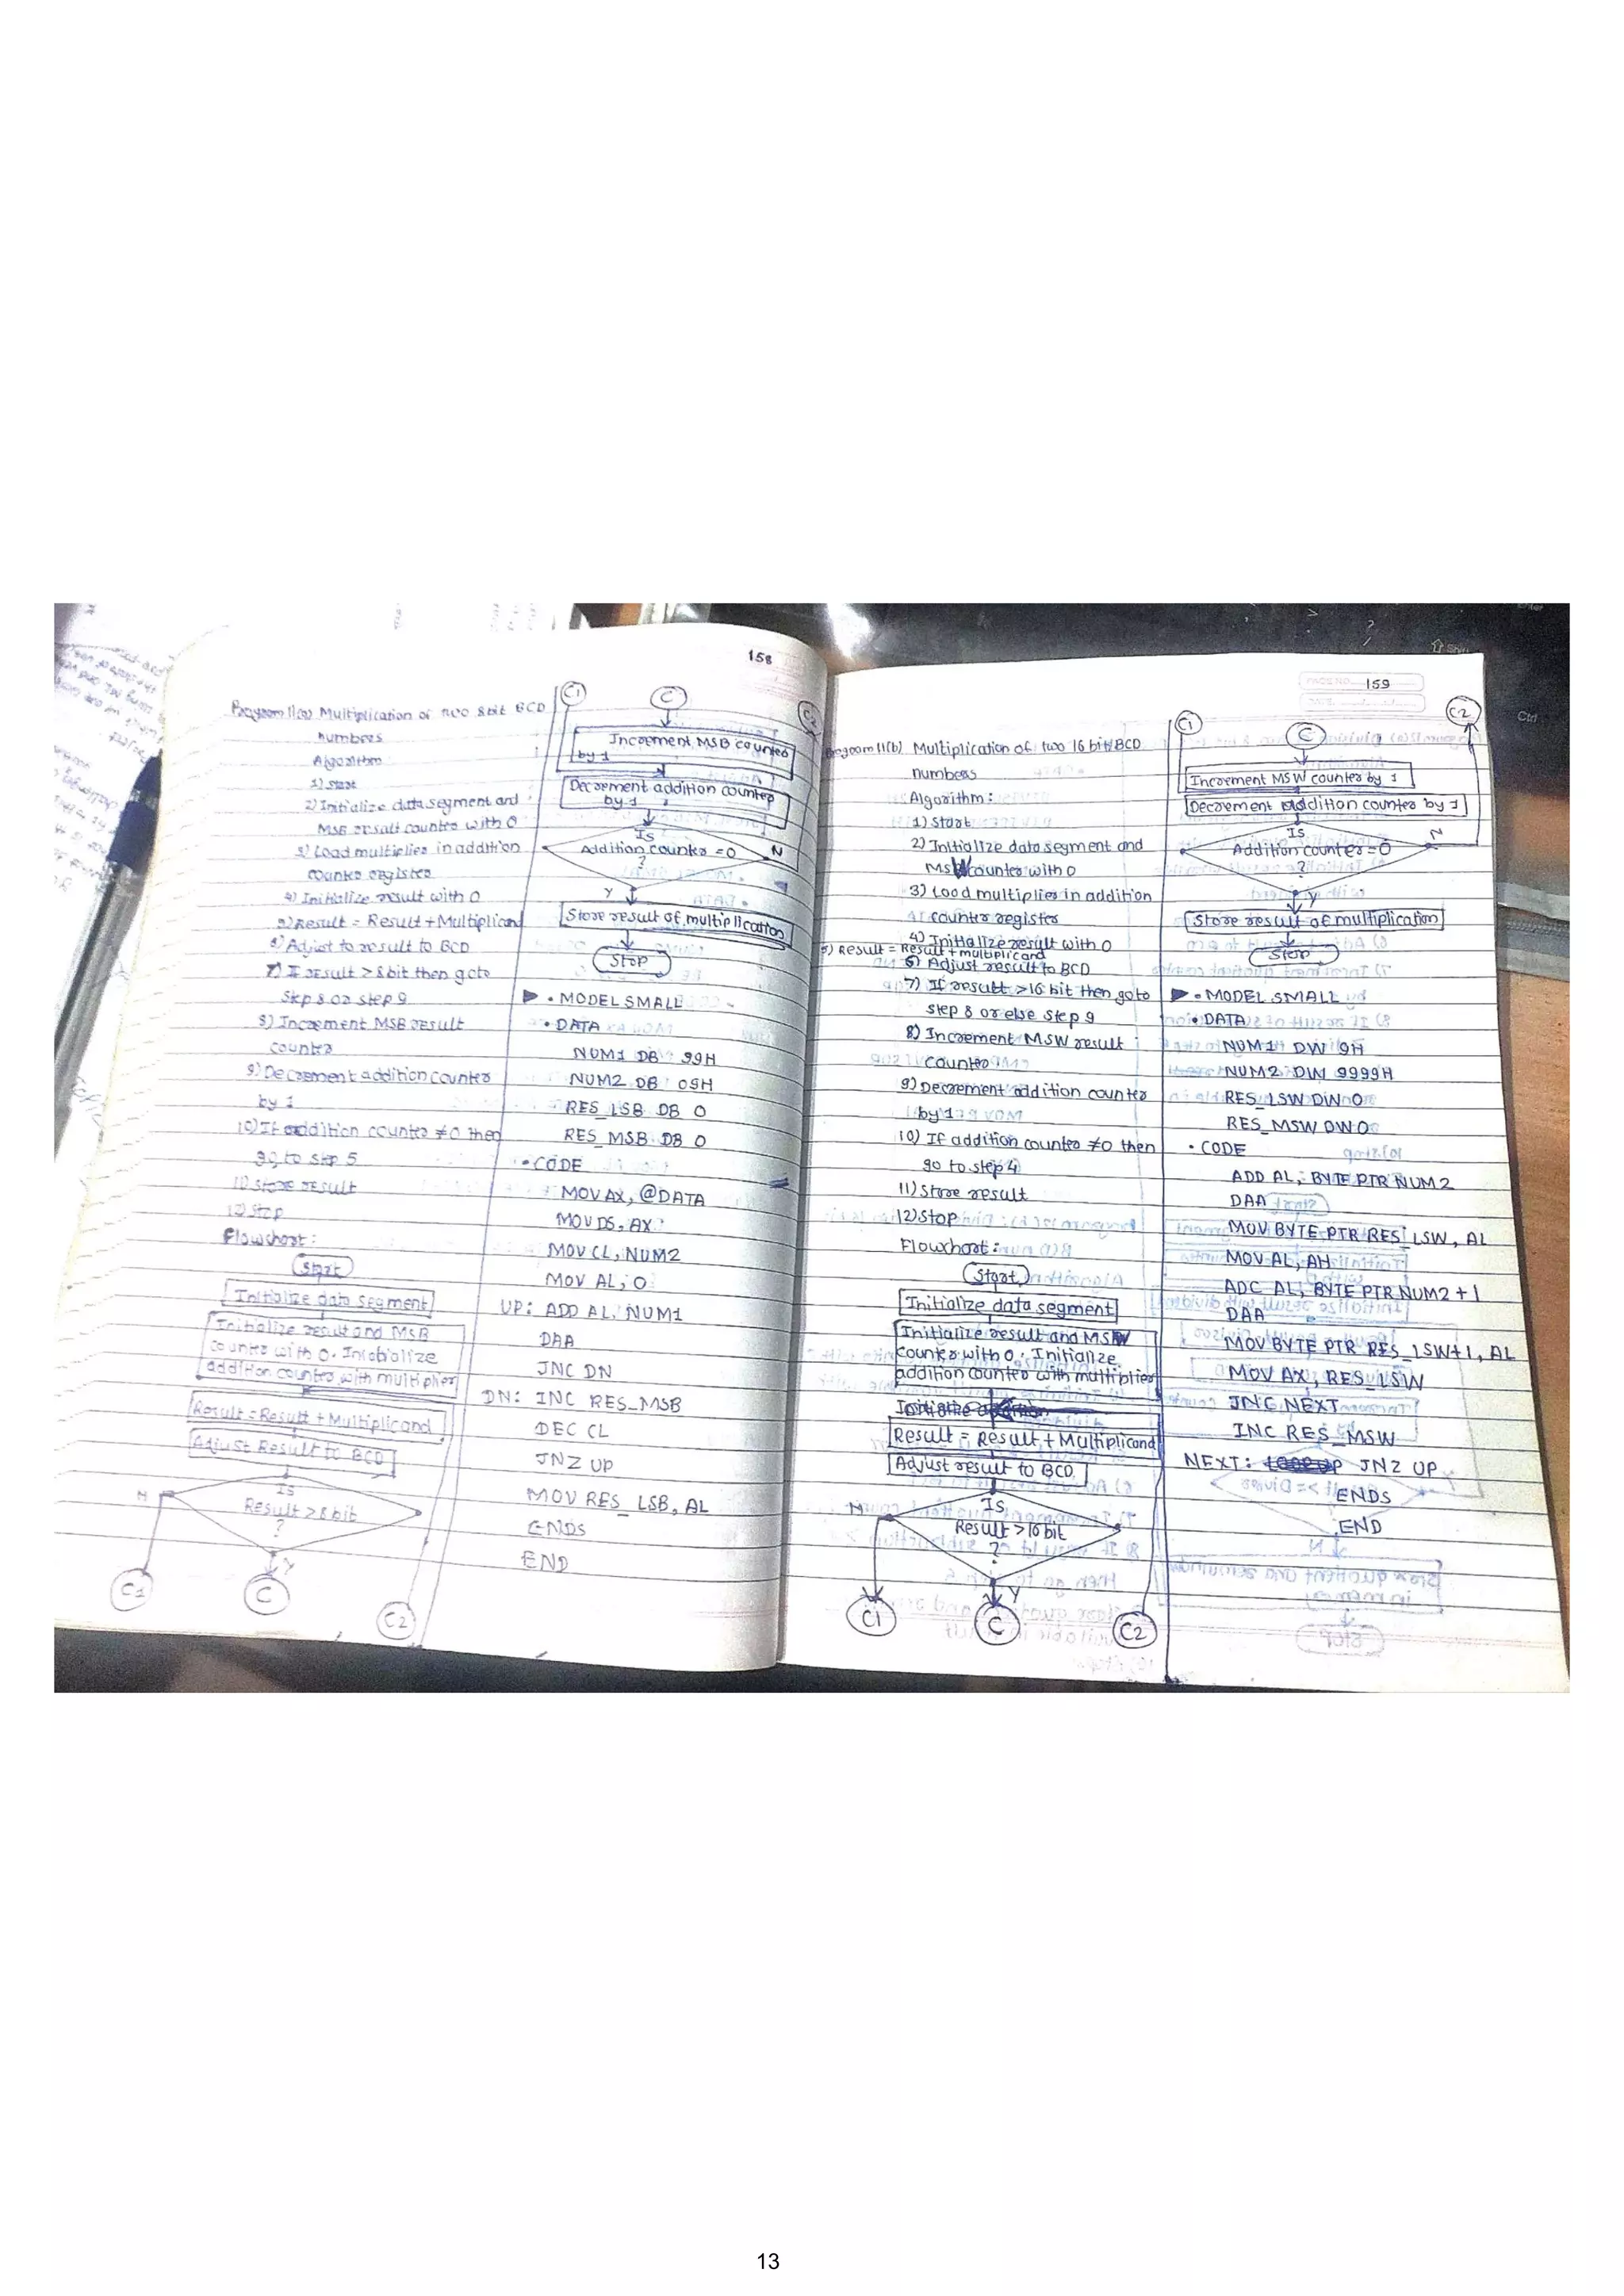 158
Program 11(a) Multiplication of two 8bit BCD
numbers
Algorithm
1) Start
2) Initialize data segment and
MSB result counter with 0
3) Load multiplier in addition
counter register
4) Initialize result with 0
5) Result = Result + Multiplicand
6) Adjust to result to BCD
7) If result > 8bit then goto
step 8 or step 9
8) Increment MSB result
counter
9) Decrement addition counter
by 1
10) If addition counter ≠0 then
go to step 5
11) Store result
12) Stop
Flowchart:
Start
Initialize data segment
Initialize result and MSB
counter with 0. Initialize
addition counter with multiplier
Result = Result + Multiplicand
Adjust Result to BCD
Is
Result > 8 bit
?
N
Y
C1
C
C2
C1
C
C2
Increment MSB counter
by 1
Decrement addition counter
by 1
Is
Addition counter = 0
?
N
Y
Store result of multiplication
Stop
.MODEL SMALL
.DATA
NUM1 DB 99H
NUM2 DB 09H
RES_LSB DB 0
RES_MSB DB 0
.CODE
MOV AX, @DATA
MOV DS, AX
MOV CL, NUM2
MOV AL, 0
UP: ADD AL, NUM1
DAA
JNC DN
DN: INC RES_MSB
DEC CL
JNZ UP
MOV RES_LSB, AL
ENDS
END
PAGE NO. 159
Program 11(b) Multiplication of two 16 bit BCD
numbers
Algorithm:
1) Start
2) Initialize data segment and
MSW counter with 0
3) Load multiplier in addition
counter register
4) Initialize result with 0
5) Result = Result + multiplicand
6) Adjust result to BCD
7) If result >16 bit then goto
step 8 or else step 9
8) Increment MSW result
counter
9) Decrement addition counter
by 1
10) If addition counter ≠0 then
go to step 4
11) Store result
12) Stop
Flowchart:
Start
Initialize data segment
Initialize result and MSW
counter with 0. Initialize
addition counter with multiplier
Result = Result + Multiplicand
Adjust result to BCD
Is
Result > 16 bit
?
N
Y
C1
C
C2
C1
C
C2
Increment MSW counter by 1
Decrement addition counter by 1
Is
Addition counter = 0
?
N
Y
Store result of multiplication
Stop
.MODEL SMALL
.DATA
NUM1 DW 9H
NUM2 DW 9999H
RES_LSW DW 0
RES_MSW DW 0
.CODE
ADD AL, BYTE PTR NUM2
DAA
MOV BYTE PTR RES_LSW, AL
MOV AL, AH
ADC AL, BYTE PTR NUM2 + 1
DAA
MOV BYTE PTR RES_LSW+1, AL
MOV AX, RES_LSW
JNC NEXT
INC RES_MSW
NEXT: JNZ UP
ENDS
END
Ctrl
13